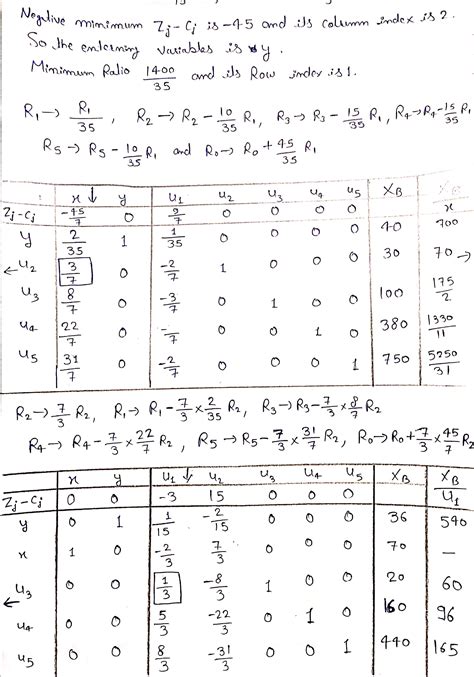 Negtive minimum Zj-Cj is -45 and its column index is 2.
So the entering variables is y.
Minimum Ratio 1400/35 and its Row index is 1.
R1→ R1/35, R2→R2-10/35 R1, R3→R3-15/35 R1, R4→R4-15/35 R1
R5→R5-10/35 R1 and R0→R0+45/35 R1
x↓ y u1 u2 u3 u4 u5 XB XB/x
Zj-Cj -45/7 0 9/7 0 0 0 0
y 2/35 1 1/35 0 0 0 0 40 700
←u2 3/7 0 -2/7 1 0 0 0 30 70→
u3 8/7 0 -3/7 0 1 0 0 100 175/2
u4 22/7 0 -/7 0 0 1 0 380 1330/11
u5 31/7 0 -2/7 0 0 0 1 750 5250/31
R2→7/3 R2, R1→R1-7/3×2/35 R2, R3→R3-7/3×8/7 R2
R4→R4-7/3×22/7 R2, R5→R5-7/3×31/7 R2, R0→R0+7/3×45/7 R2
x y u1↓ u2 u3 u4 u5 XB XB/u1
Zj-Cj 0 0 -3 15 0 0 0
y 0 1 1/15 -2/15 0 0 0 36 540
x 1 0 -2/3 7/3 0 0 0 70 —
u3← 0 0 1/3 -8/3 1 0 0 20 60
u4 0 0 5/3 -22/3 0 1 0 160 96
u5 0 0 8/3 -31/3 0 0 1 440 165